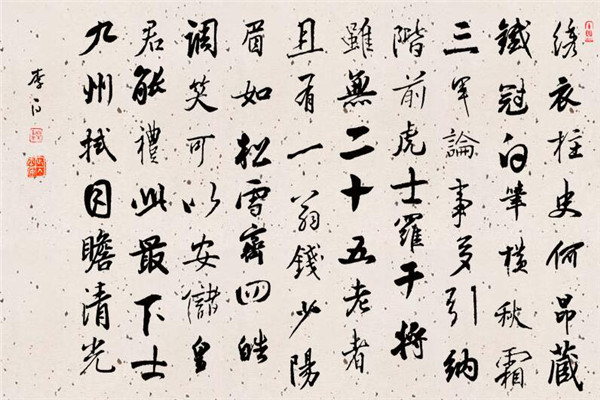 繡衣柱史何昂藏
鐵冠白筆橫秋霜
三軍論事多引納
階前虎士羅干將
雖無二十五老者
且有一翁錢少陽
眉如松雪齊四皓
調笑可以安儲皇
君能禮此最下士
九州拭目瞻清光
李白